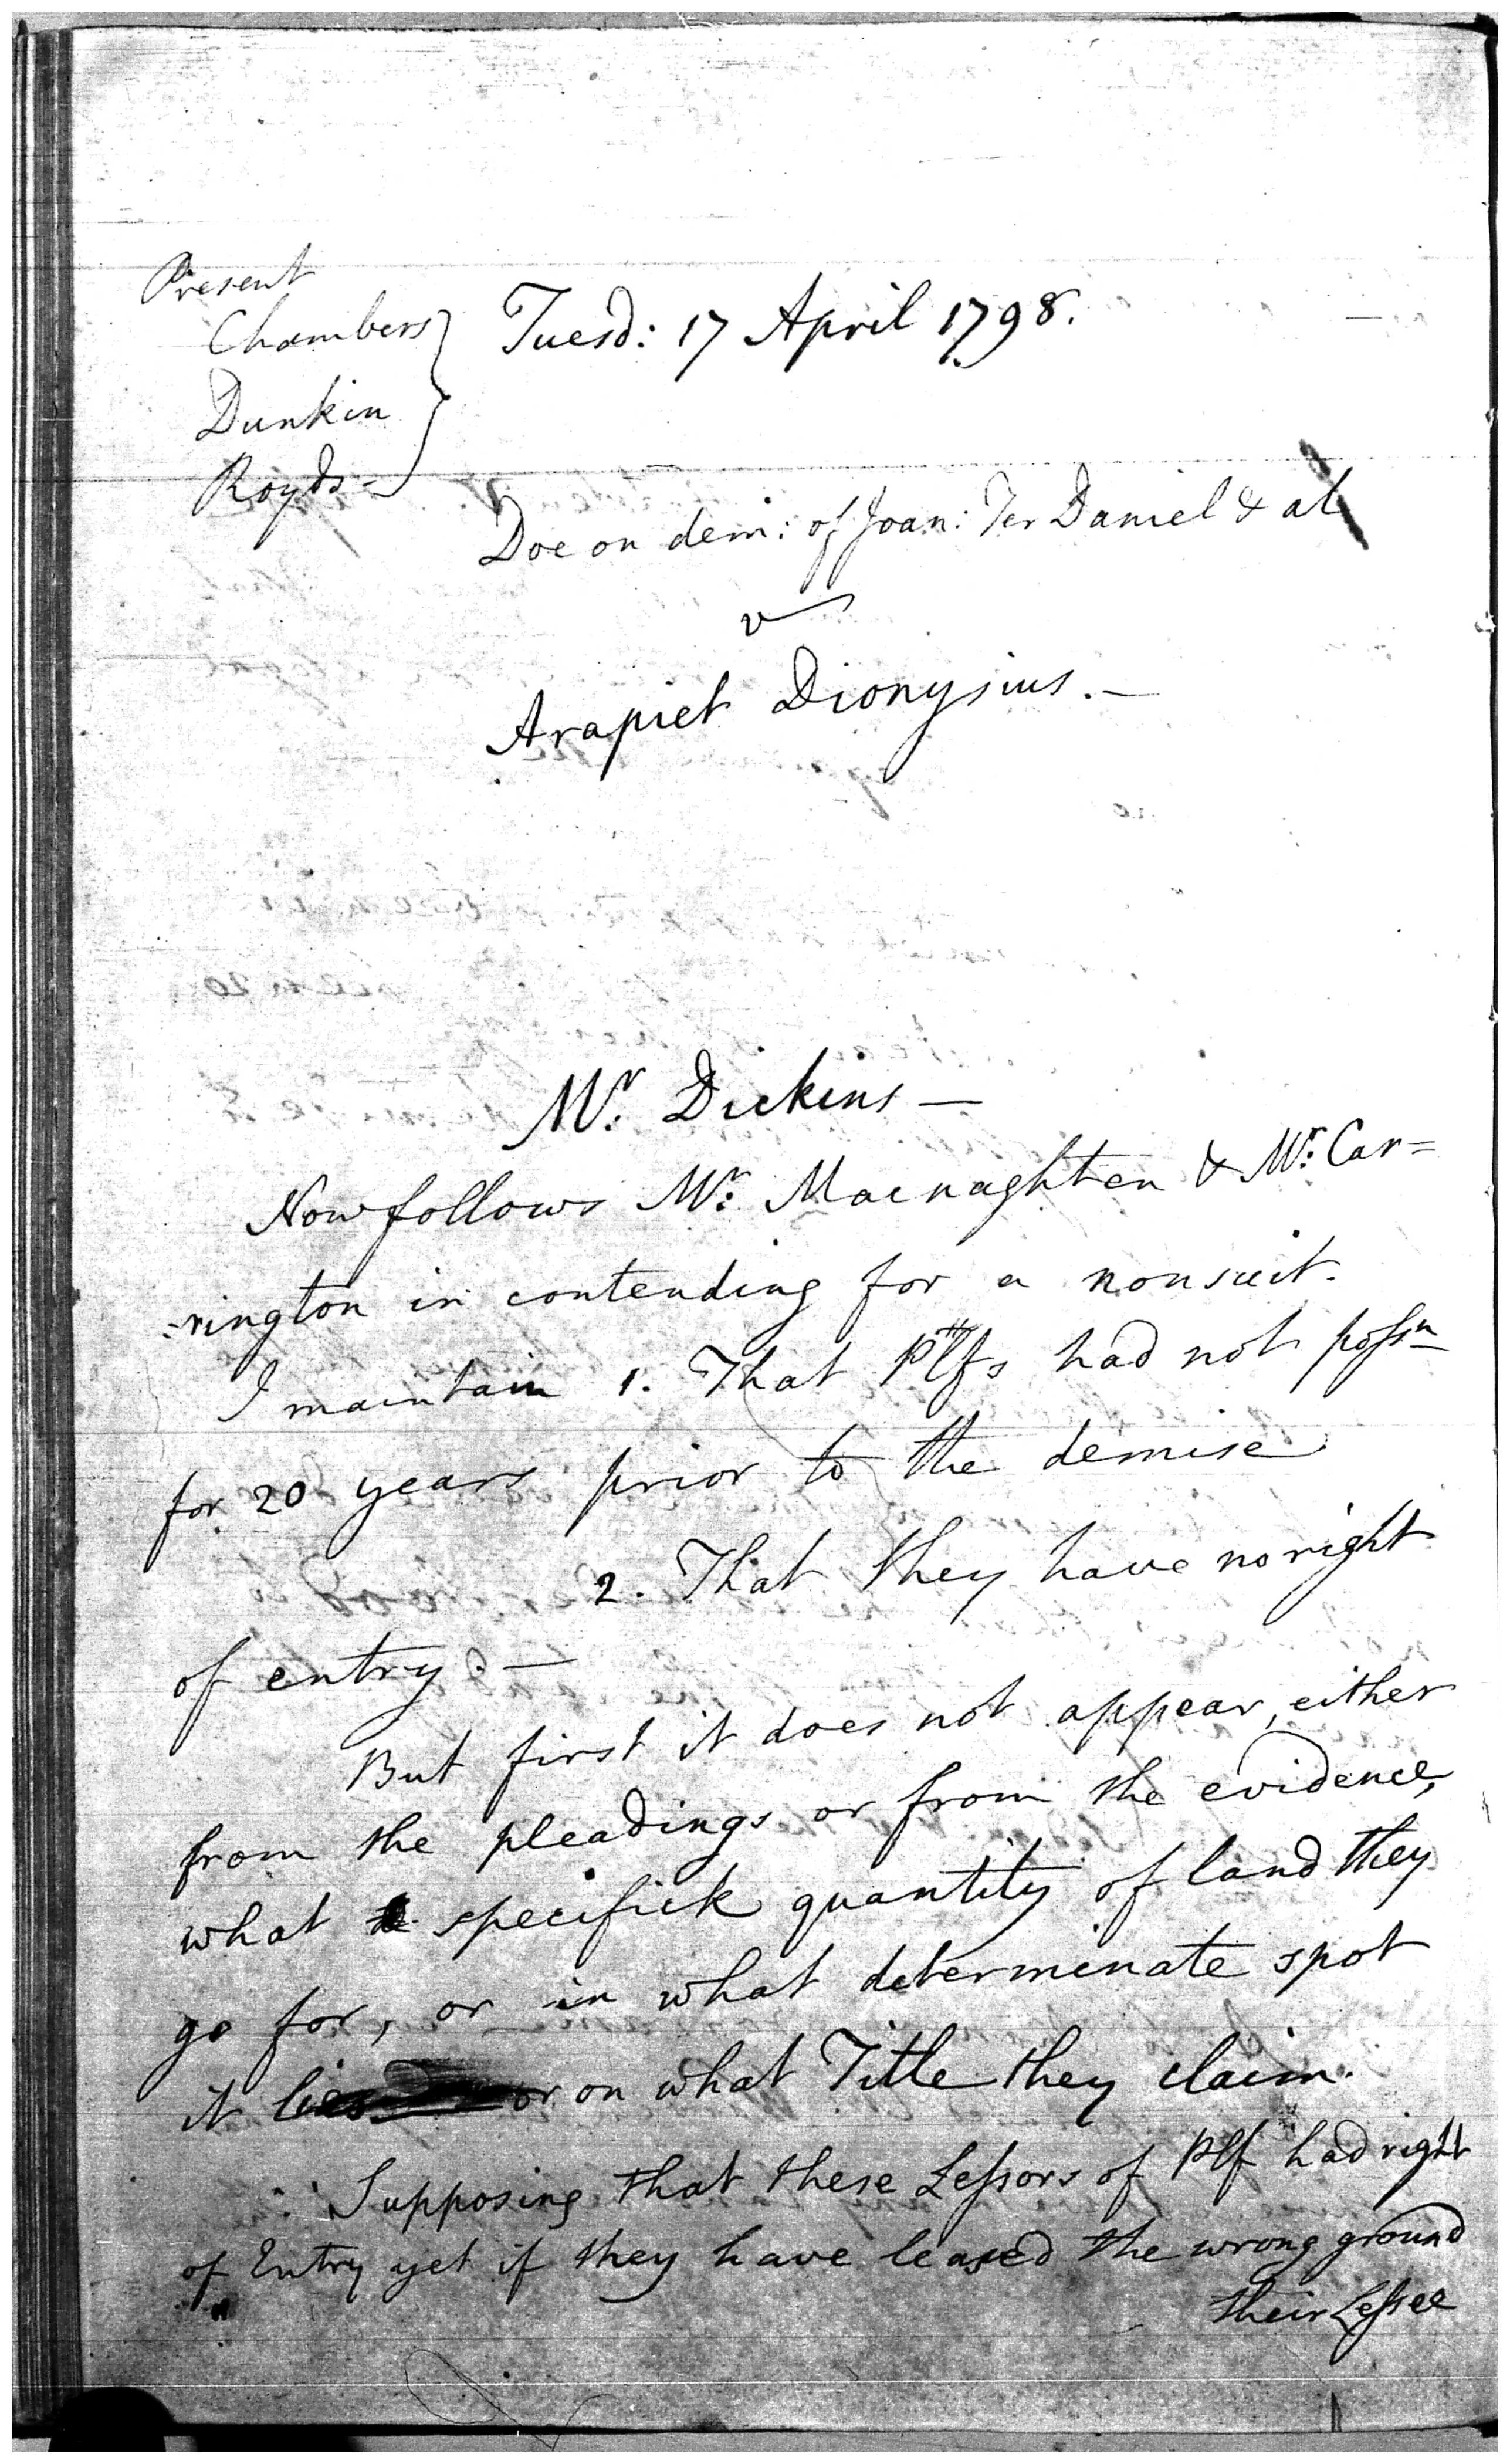 Present
Chambers
Dunkin
Royds
Tuesd: 17 April 1798.
Doe on dem: of Joan: Ter Daniel & al
v
Arapiet Dionysius.—
Mr. Dickins—
Now follows Mr. Macnaghten & Mr. Car=
=rington in contending for a nonsuit.
I maintain 1. That Plfs had not possn
for 20 years prior to the demise
2. That they have no right
of entry.—
But first it does not appear, either
from the pleadings or from the evidence,
what specifick quantity of land they
go for, or in what determinate spot
it lies or on what Title they claim.
Supposing that these Lessors of Plf had right
of Entry yet if they have leased the wrong ground
their Lessee